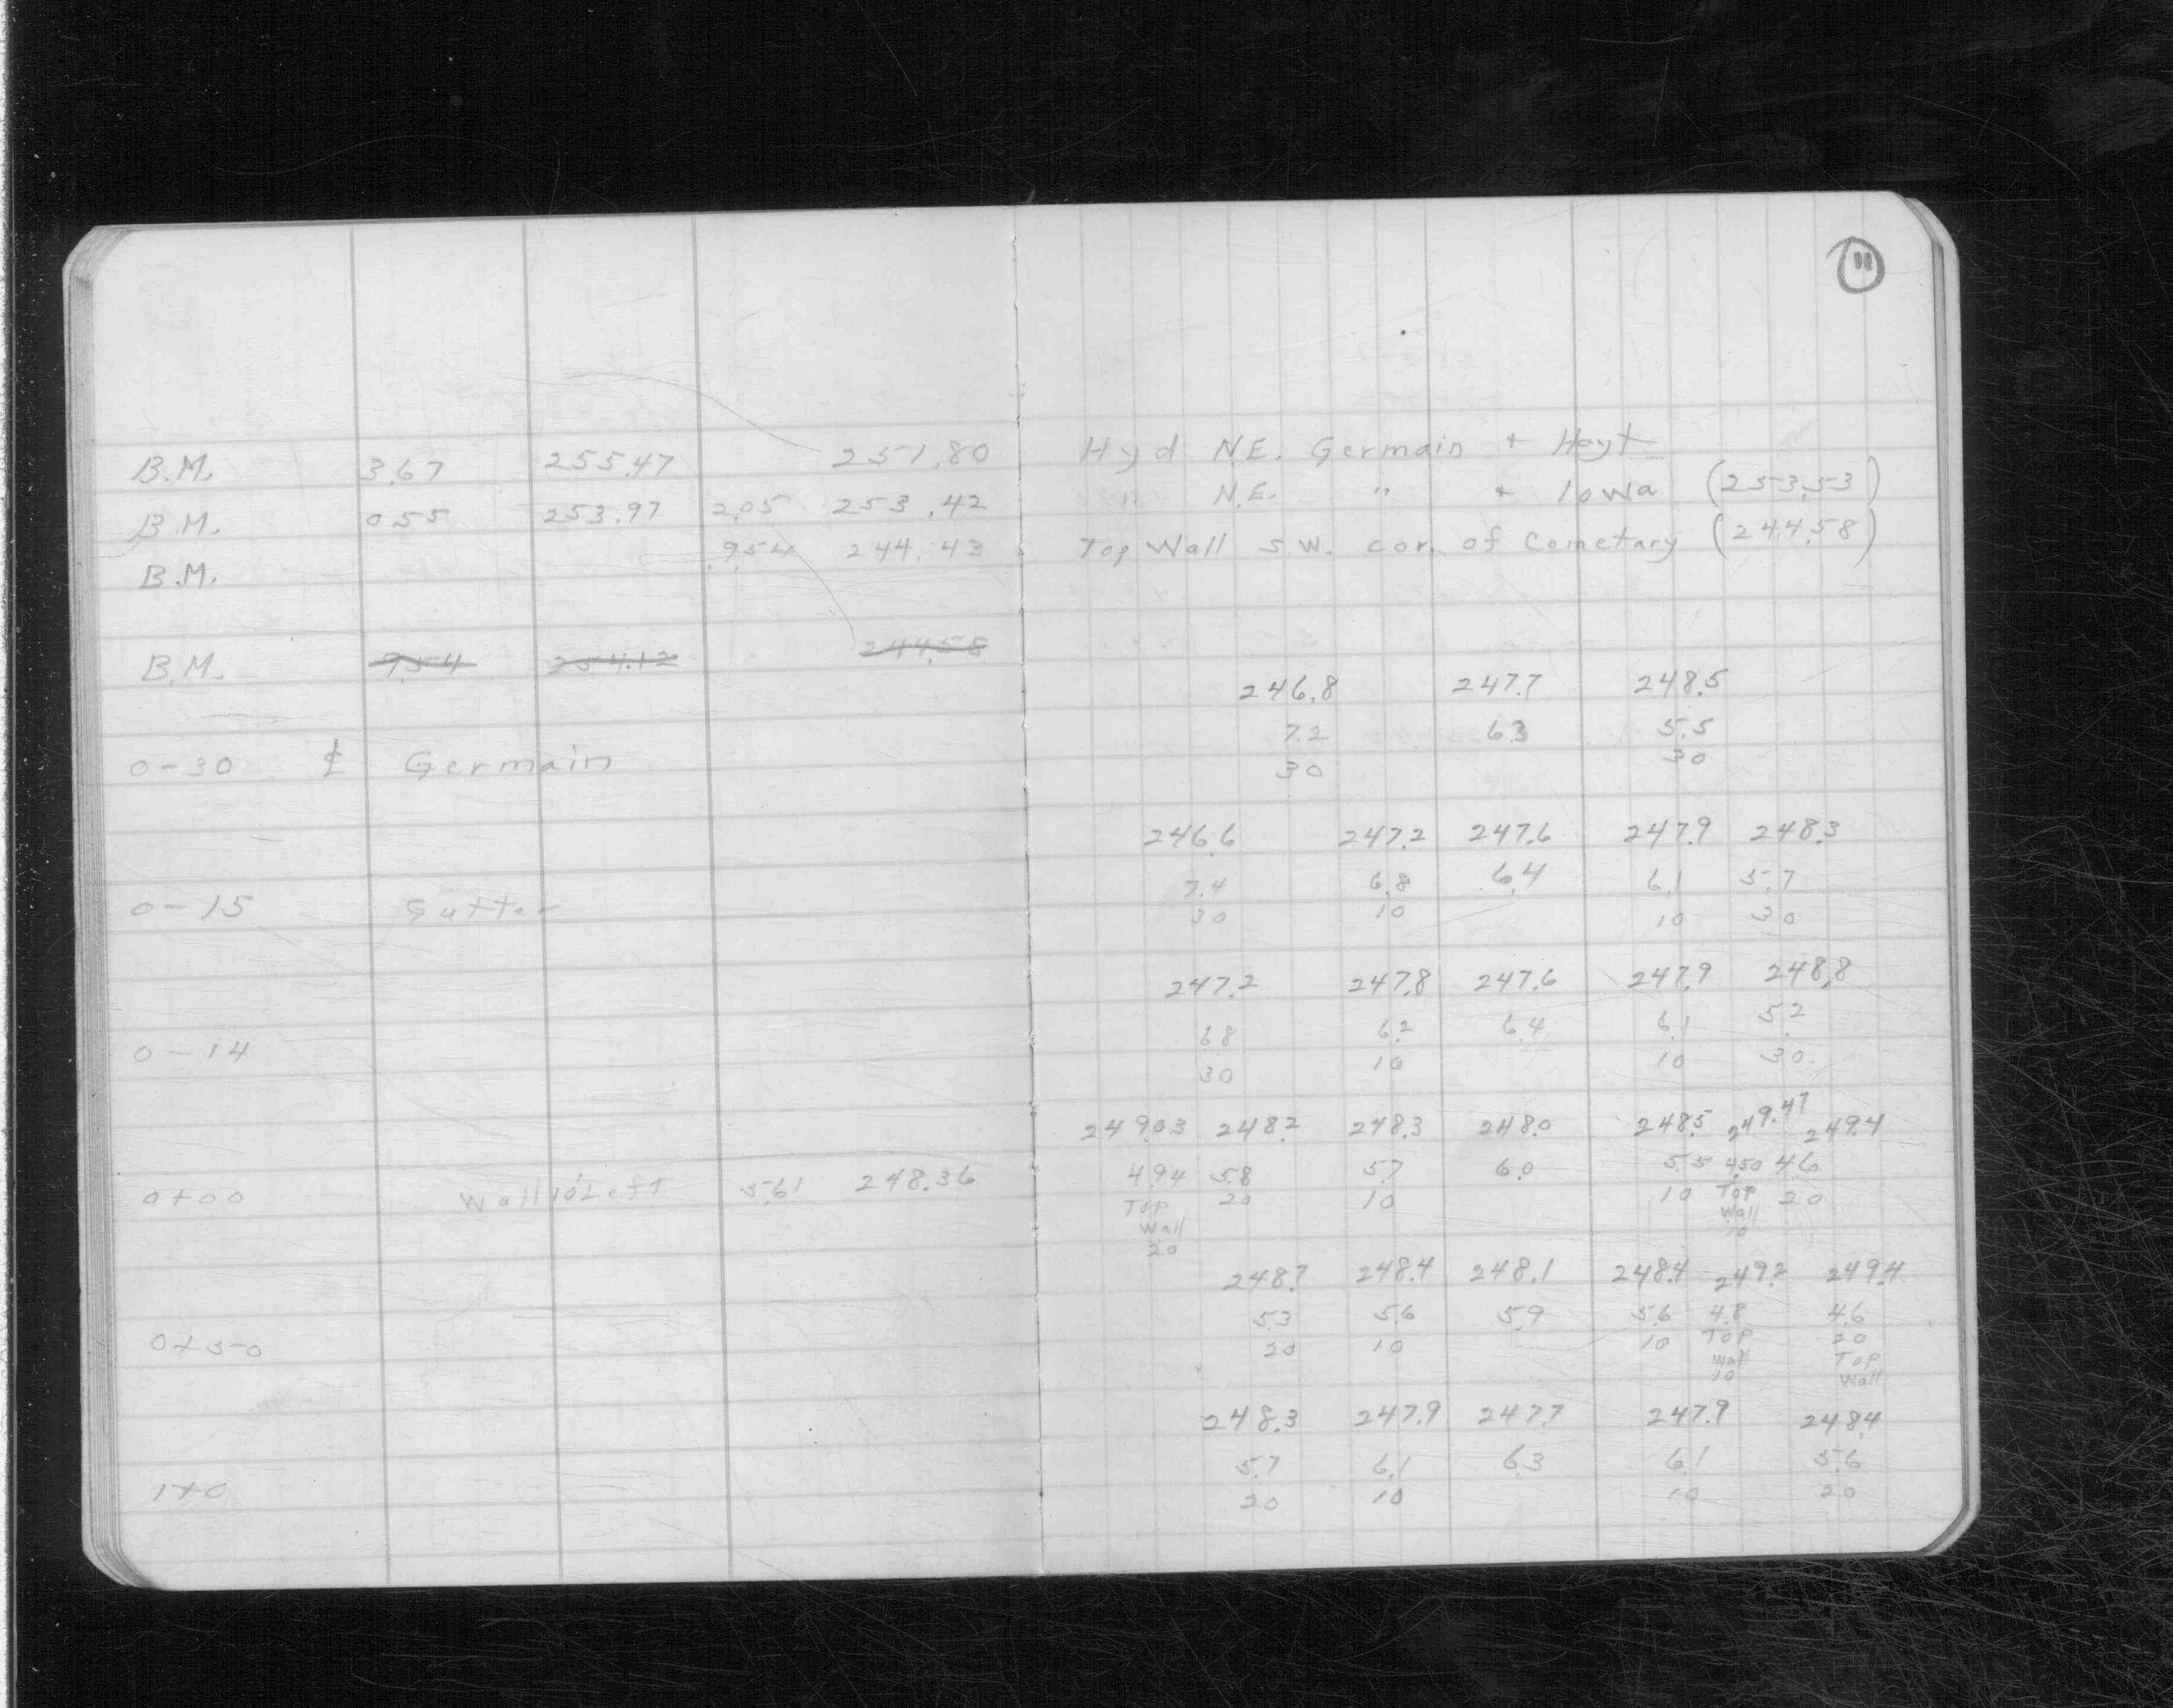 11
B.M. 3.67 255.47 251.80 Hyd N.E. Germain + Hoyt
B.M. 0.55 253.97 2.05 253.42 " N.E. " + Iowa (253.53)
B.M. 9.54 244.43 Top Wall S.W. cor. of Cemetary (244.58)
B.M. 9.54 254.12 244.58
246.8 247.7 248.5
7.2 6.3 5.5
0-30 ₵ Germain
30 30
246.6 247.2 247.6 247.9 248.3
7.4 6.8 6.4 6.1 5.7
0-15 Gutter 30 10 10 30
247.2 247.8 247.6 247.9 248.8
6.8 6.2 6.4 6.1 5.2
0-14 30 10 10 30
249.03 248.2 248.3 248.0 248.5 249.47 249.4
4.94 5.8 5.7 6.0 5.5 4.50 4.6
0+00 Wall 10' Left 5.61 248.36 Top 20 10 10 Top 20
Wall Wall
20 10
248.7 248.4 248.1 248.4 249.2 249.4
5.3 5.6 5.9 5.6 4.8 4.6
0+50 20 10 10 Top 20
Wall Top
10 Wall
248.3 247.9 247.7 247.9 248.4
5.7 6.1 6.3 6.1 5.6
1+0 20 10 10 20